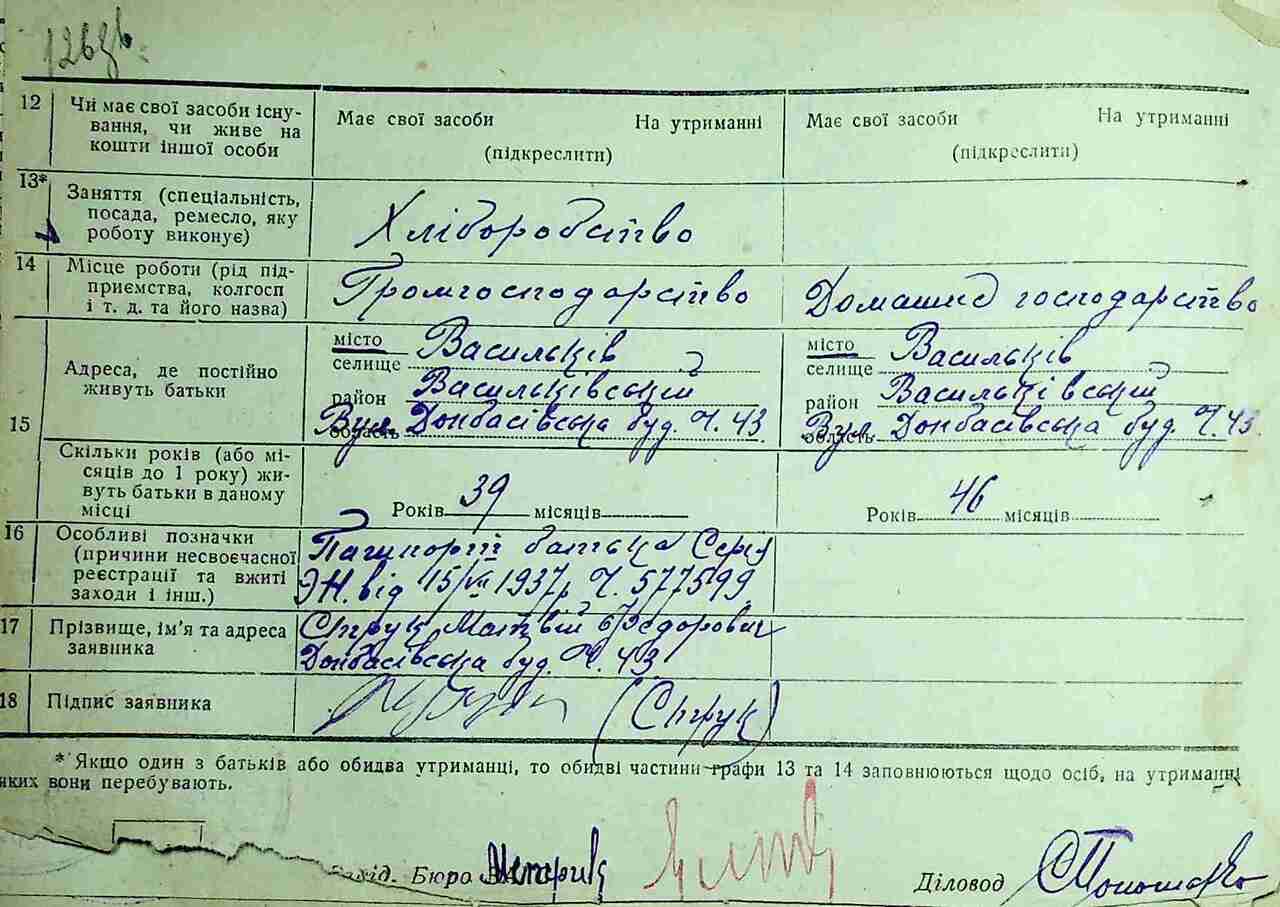 126зв.
12 Чи має свої засоби існу-
вання, чи живе на
кошти іншої особи
Має свої засоби На утриманні
(підкреслити)
Має свої засоби На утриманні
(підкреслити)
13* Заняття (спеціальність,
посада, ремесло, яку
роботу виконує)
Хліборобство
14 Місце роботи (рід під-
приємства, колгосп
і т. д. та його назва)
Громгосподарство
Домашнє господарство
15
Адреса, де постійно
живуть батьки
місто Васильків
селище
район Васильківський
область Вул. Донбасівська буд. Ч. 43
місто Васильків
селище
район Васильківський
область Вул. Донбасівська буд. Ч. 43
Скільки років (або мі-
сяців до 1 року) жи-
вуть батьки в даному
місці
Років 39 місяців
Років 46 місяців
16 Особливі позначки
(причини несвоєчасної
реєстрації та вжиті
заходи і інш.)
Пашпорт батька Серія
ЭН. від 15/VII 1937р Ч. 577599
17 Прізвище, ім'я та адреса
заявника
Струк Матвій Федорович
Донбасівська буд. Ч. 43
18 Підпис заявника
(Струк)
* Якщо один з батьків або обидва утриманці, то обидві частини графи 13 та 14 заповнюються щодо осіб, на утриманні
яких вони перебувають.
Завід. Бюро
Діловод